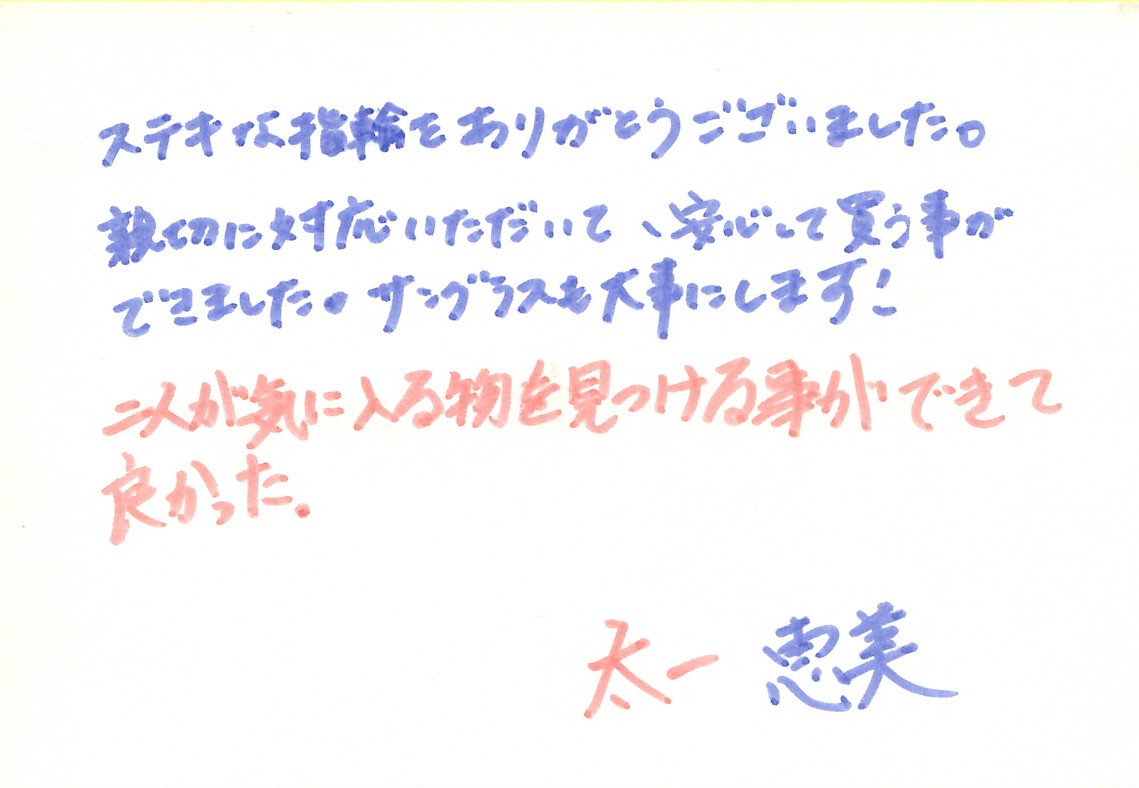 ステキな指輪をありがとうございました。
親切に対応いただいて、安心して買う事が
できました。サングラスも大事にします!
二人が気に入る物を見つける事ができて
良かった.
太一 恵美